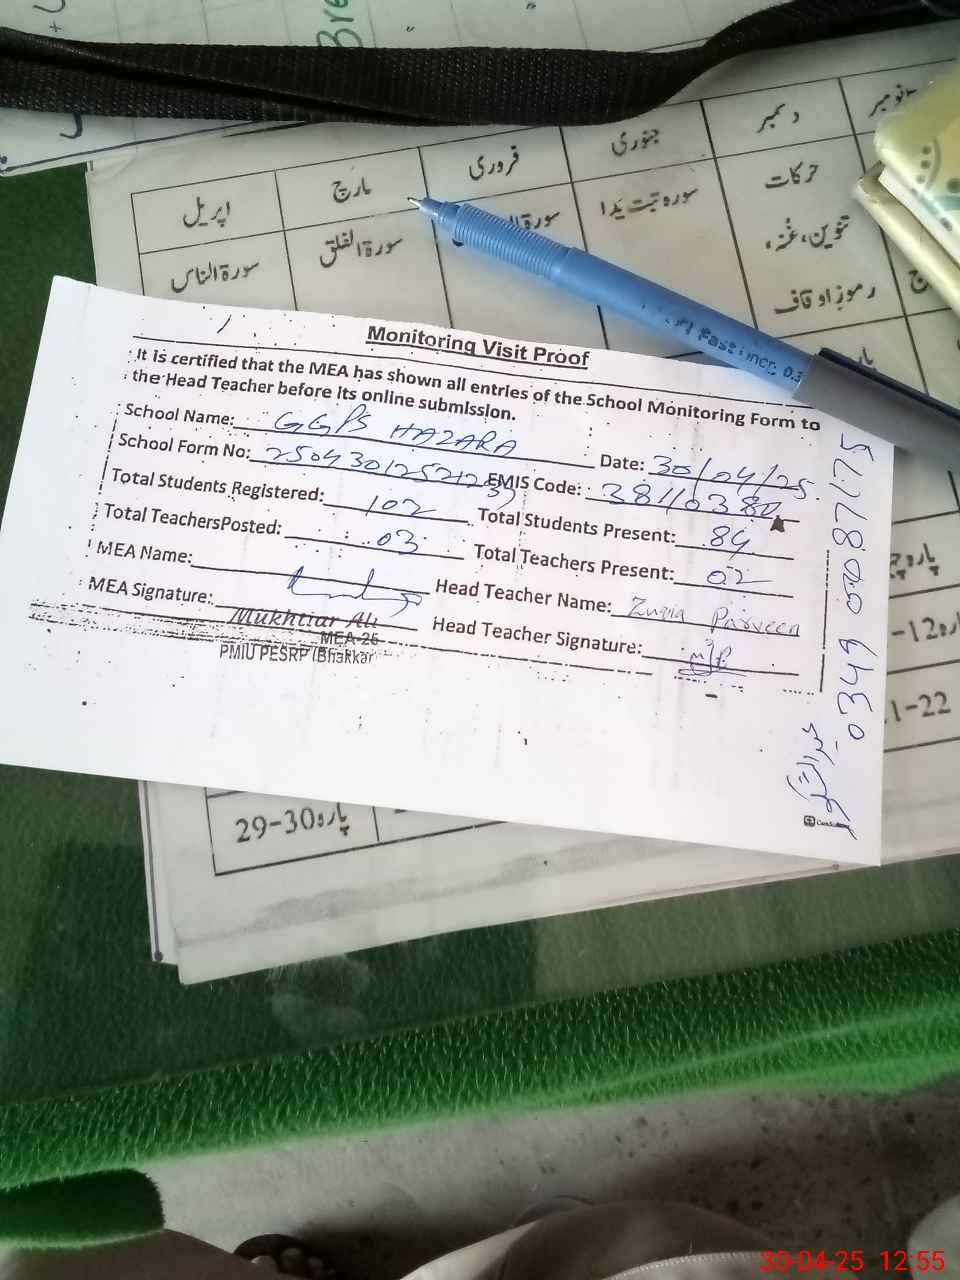 Bre
نومبر
دسمبر
جنوری
فروری
مارچ
اپریل
حرکات
تنوین، غُنہ،
رموز اوقاف
سورہ تبت یَدا
سورۃ الفلق
سورۃ الناس
Monitoring Visit Proof
It is certified that the MEA has shown all entries of the School Monitoring Form to
the Head Teacher before its online submission.
School Name: GGPS HAZARA Date: 30/04/25
School Form No: EMIS Code: 38110380
Total Students Registered: 102 Total Students Present: 84
Total TeachersPosted: 03 Total Teachers Present: 02
MEA Name: Head Teacher Name: Zuqia Parveen
MEA Signature: Head Teacher Signature:
Mukhtiar Ali
MEA-26
PMIU PESRP (Bhakkar
عبدالشکور
پارہ
-12
1-22
پارہ 29-30
30-04-25 12:55